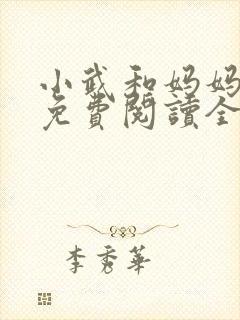 小武和妈妈
免費閱讀全
李秀華